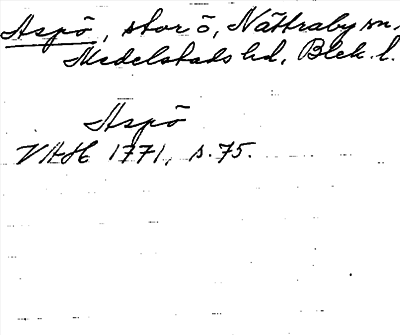 Aspö, stor ö, Nättraby sn.
Medelstads hd, Blek. l.
Aspö
VAH 1771, s. 75.